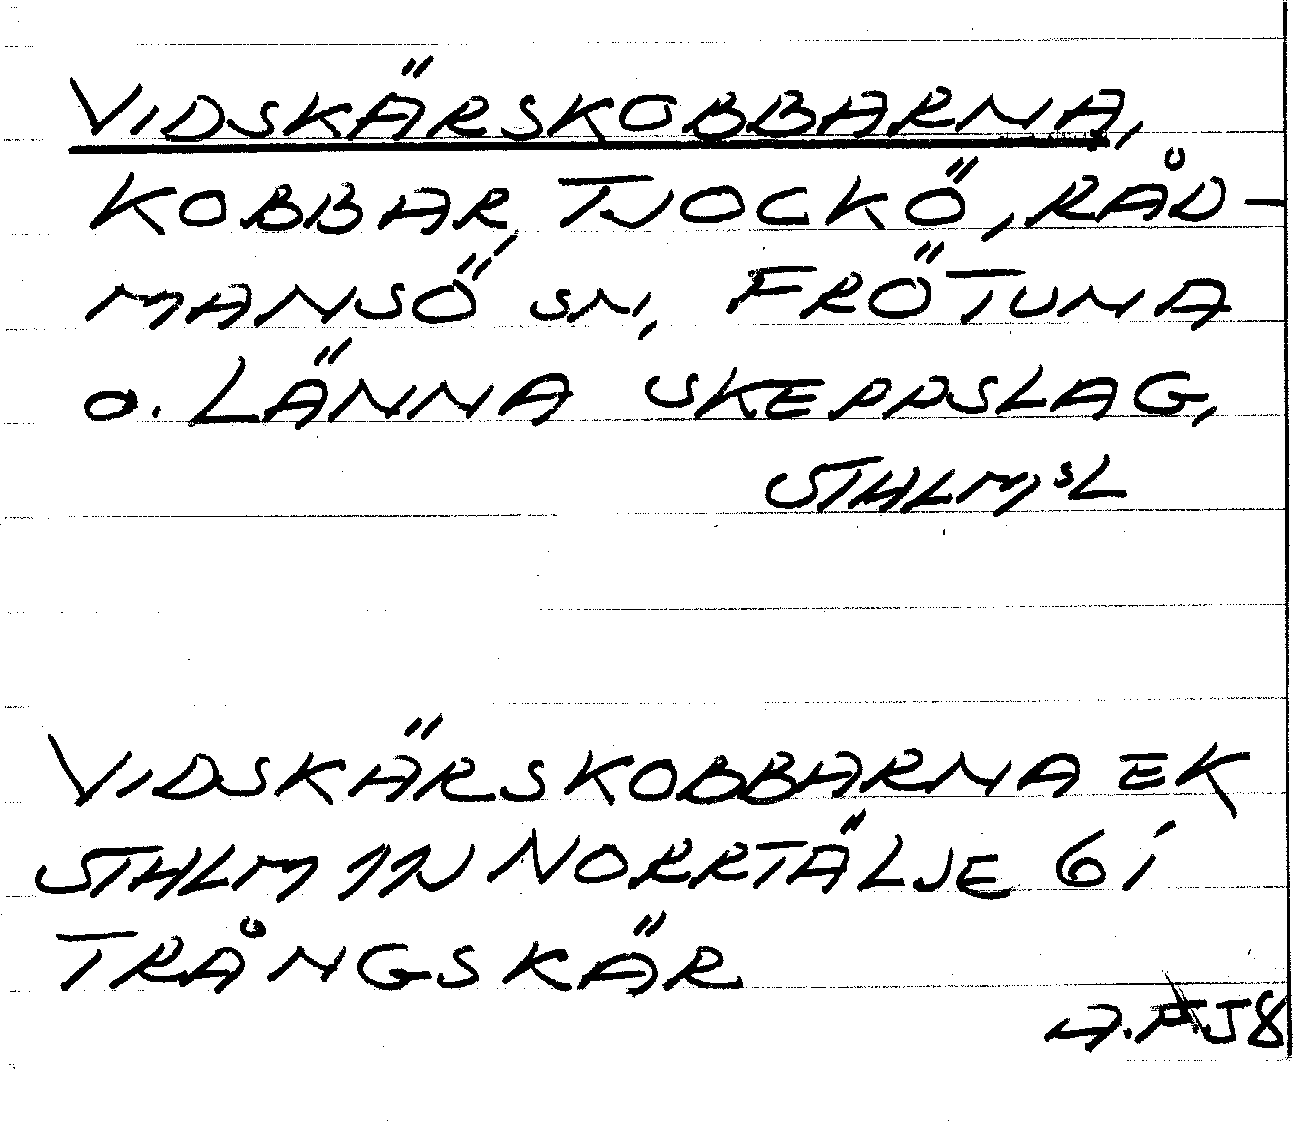 VIDSKÄRSKOBBARNA,
KOBBAR, TJOCKÖ, RÅD-
MANSÖ SN, FRÖTUNA
o. LÄNNA SKEPPSLAG,
STHLMSL
VIDSKÄRSKOBBARNA EK
STHLM 11N NORRTÄLJE 6i
TRÅNGSKÄR